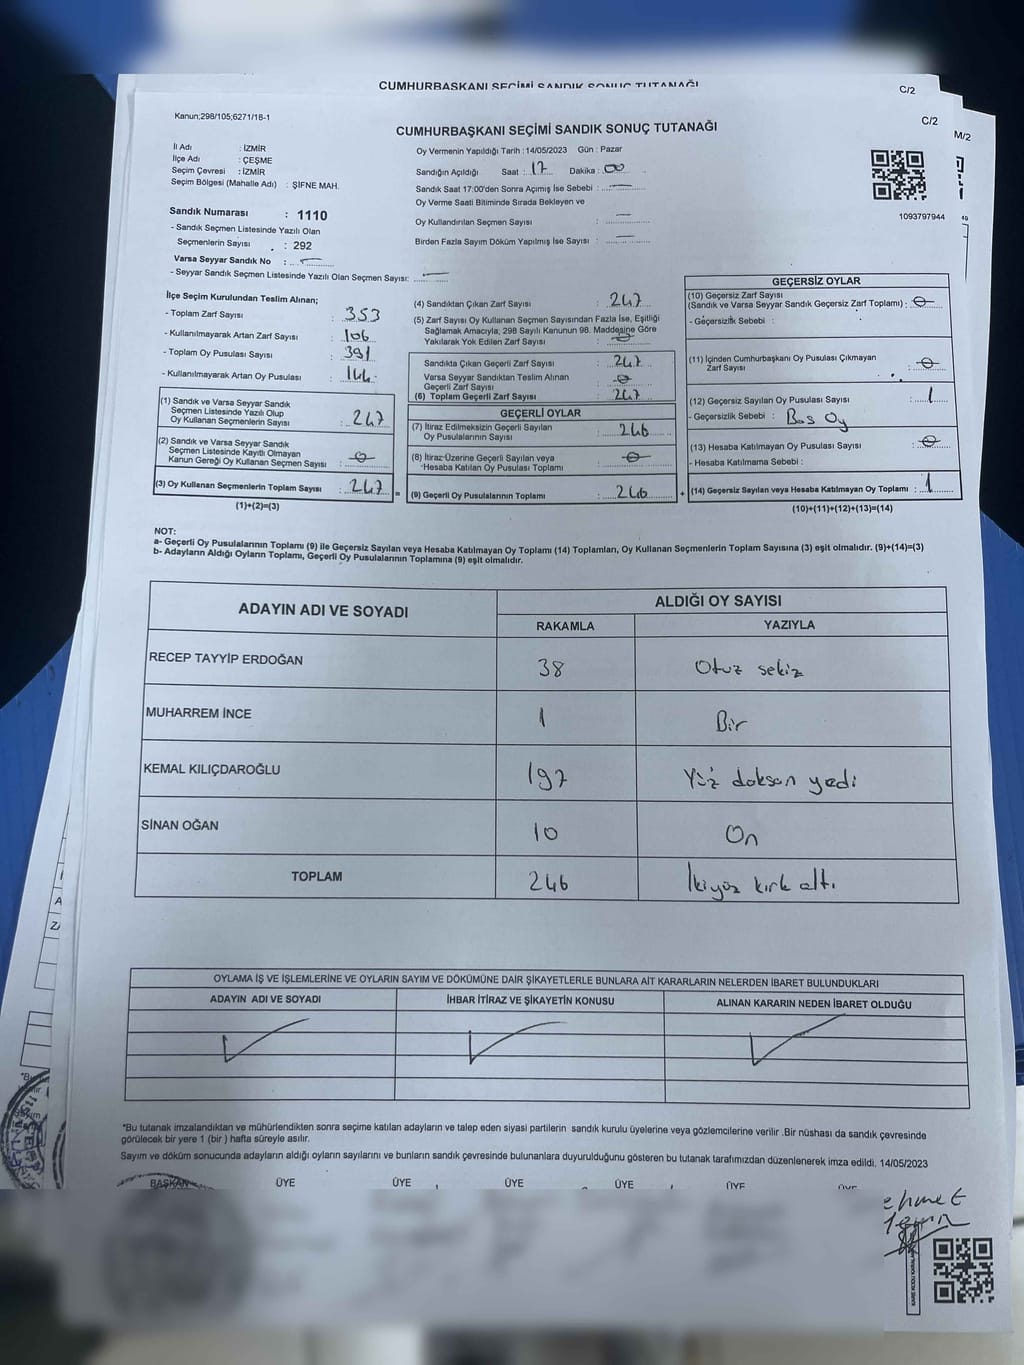 CUMHURBAŞKANI SEÇİMİ SANDIK SONUÇ TUTANAĞI
C/2
Kanun;298/105;6271/18-1
C/2
M/2
CUMHURBAŞKANI SEÇİMİ SANDIK SONUÇ TUTANAĞI
İl Adı : İZMİR
İlçe Adı : ÇEŞME
Seçim Çevresi : İZMİR
Seçim Bölgesi (Mahalle Adı) : ŞİFNE MAH.
Oy Vermenin Yapıldığı Tarih : 14/05/2023 Gün : Pazar
Sandığın Açıldığı Saat : 17 Dakika : 00
Sandık Saat 17:00'den Sonra Açımış İse Sebebi : —
Oy Verme Saati Bitiminde Sırada Bekleyen ve
Oy Kullandırılan Seçmen Sayısı : —
Birden Fazla Sayım Döküm Yapılmış İse Sayısı : —
1093797944
Sandık Numarası : 1110
- Sandık Seçmen Listesinde Yazılı Olan
Seçmenlerin Sayısı : 292
Varsa Seyyar Sandık No : —
- Seyyar Sandık Seçmen Listesinde Yazılı Olan Seçmen Sayısı: —
İlçe Seçim Kurulundan Teslim Alınan;
- Toplam Zarf Sayısı : 353
- Kullanılmayarak Artan Zarf Sayısı : 106
- Toplam Oy Pusulası Sayısı : 391
- Kullanılmayarak Artan Oy Pusulası : 144
(1) Sandık ve Varsa Seyyar Sandık
Seçmen Listesinde Yazılı Olup
Oy Kullanan Seçmenlerin Sayısı : 247
(2) Sandık ve Varsa Seyyar Sandık
Seçmen Listesinde Kayıtlı Olmayan
Kanun Gereği Oy Kullanan Seçmen Sayısı : 0
(3) Oy Kullanan Seçmenlerin Toplam Sayısı : 247
(1)+(2)=(3)
(4) Sandıktan Çıkan Zarf Sayısı : 247
(5) Zarf Sayısı Oy Kullanan Seçmen Sayısından Fazla İse, Eşitliği
Sağlamak Amacıyla; 298 Sayılı Kanunun 98. Maddesine Göre
Yakılarak Yok Edilen Zarf Sayısı : 0
Sandıkta Çıkan Geçerli Zarf Sayısı : 247
Varsa Seyyar Sandıktan Teslim Alınan
Geçerli Zarf Sayısı : 0
(6) Toplam Geçerli Zarf Sayısı : 247
GEÇERLİ OYLAR
(7) İtiraz Edilmeksizin Geçerli Sayılan
Oy Pusulalarının Sayısı : 246
(8) İtiraz Üzerine Geçerli Sayılan veya
Hesaba Katılan Oy Pusulası Toplamı : 0
= (9) Geçerli Oy Pusulalarının Toplamı : 246 +
GEÇERSİZ OYLAR
(10) Geçersiz Zarf Sayısı
(Sandık ve Varsa Seyyar Sandık Geçersiz Zarf Toplamı) : 0
- Geçersizlik Sebebi :
(11) İçinden Cumhurbaşkanı Oy Pusulası Çıkmayan
Zarf Sayısı : 0
(12) Geçersiz Sayılan Oy Pusulası Sayısı : 1
- Geçersizlik Sebebi : Boş Oy
(13) Hesaba Katılmayan Oy Pusulası Sayısı : 0
- Hesaba Katılmama Sebebi :
(14) Geçersiz Sayılan veya Hesaba Katılmayan Oy Toplamı : 1
(10)+(11)+(12)+(13)=(14)
NOT:
a- Geçerli Oy Pusulalarının Toplamı (9) ile Geçersiz Sayılan veya Hesaba Katılmayan Oy Toplamı (14) Toplamları, Oy Kullanan Seçmenlerin Toplam Sayısına (3) eşit olmalıdır. (9)+(14)=(3)
b- Adayların Aldığı Oyların Toplamı, Geçerli Oy Pusulalarının Toplamına (9) eşit olmalıdır.
ADAYIN ADI VE SOYADI ALDIĞI OY SAYISI
RAKAMLA YAZIYLA
RECEP TAYYİP ERDOĞAN 38 Otuz sekiz
MUHARREM İNCE 1 Bir
KEMAL KILIÇDAROĞLU 197 Yüz doksan yedi
SİNAN OĞAN 10 On
TOPLAM 246 İkiyüz kırk altı
OYLAMA İŞ VE İŞLEMLERİNE VE OYLARIN SAYIM VE DÖKÜMÜNE DAİR ŞİKAYETLERLE BUNLARA AİT KARARLARIN NELERDEN İBARET BULUNDUKLARI
ADAYIN ADI VE SOYADI İHBAR İTİRAZ VE ŞİKAYETİN KONUSU ALINAN KARARIN NEDEN İBARET OLDUĞU
*Bu tutanak imzalandıktan ve mühürlendikten sonra seçime katılan adayların ve talep eden siyasi partilerin sandık kurulu üyelerine veya gözlemcilerine verilir .Bir nüshası da sandık çevresinde
görülecek bir yere 1 (bir ) hafta süreyle asılır.
Sayım ve döküm sonucunda adayların aldığı oyların sayılarını ve bunların sandık çevresinde bulunanlara duyurulduğunu gösteren bu tutanak tarafımızdan düzenlenerek imza edildi. 14/05/2023
BAŞKAN ÜYE ÜYE ÜYE ÜYE ÜYE ÜYE